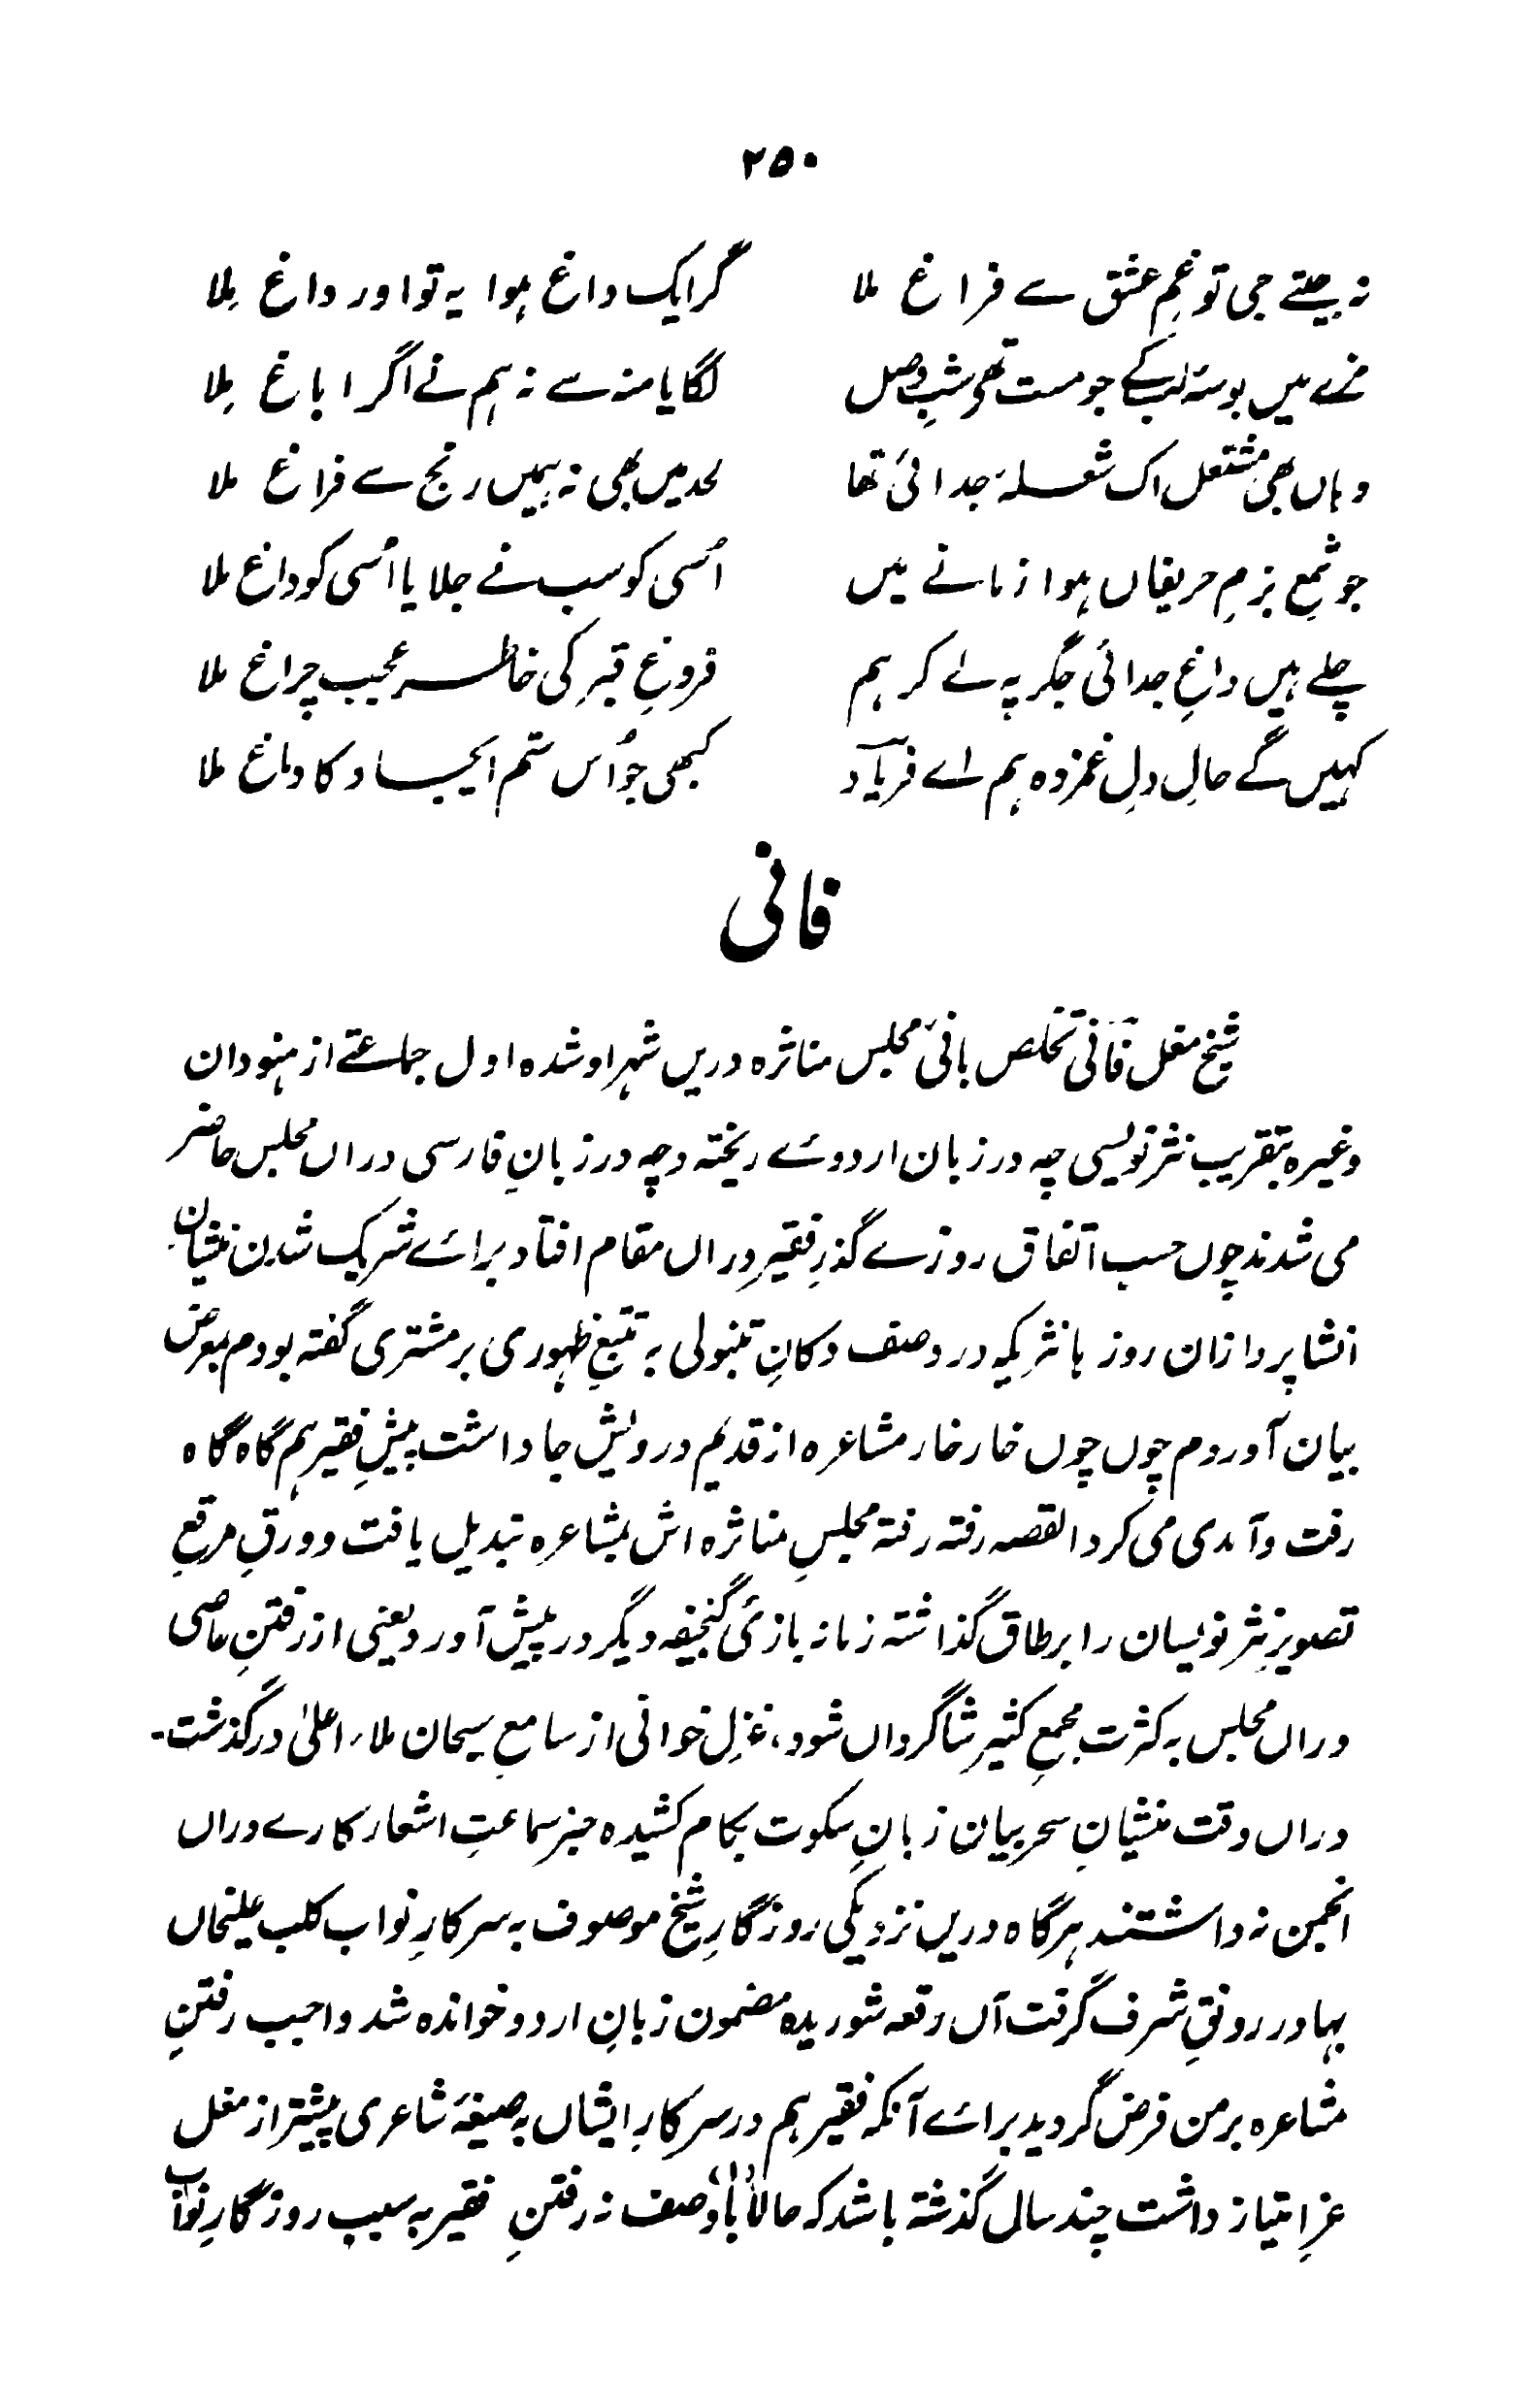 ۲۵۰
نہ جیتے جی تو غمِ عشق سے فراغ ملا گر ایک داغ ہوا یہ تو اور داغ مِلا
مزے میں بوسۂ لب کے جو مست تھے شبِ وصل لگایا منہ سے نہ ہم نے اگر ایاغ مِلا
وہاں بھی مشتعل اک شعلۂ جدائی تھا لحد میں بھی نہ ہمیں رنج سے فراغ ملا
جو شمعِ بزمِ حریفاں ہوا زمانے میں اُسی کو سب نے جلایا اُسی کو داغ ملا
چلے ہیں داغِ جدائی جگر پہ لے کر ہم فروغِ قبر کی خاطر عجیب چراغ ملا
کہیں گے حالِ دلِ غمزدہ ہم اے فریاد کبھی جو اُس ستم ایجاد کا دماغ ملا
فانی
شیخ مغل فانی تخلص بانیٔ مجلس مناثرہ دریں شہر او شدہ اول جماعتے از ہنودان
وغیرہ بتقریب نثر نویسی چہ در زبان اردوئے ریختہ و چہ در زبانِ فارسی دراں مجلس حاضر
می شدند چوں حسب اتفاق روزے گذرِ فقیر دراں مقام افتاد برائے شریک شدن منشیانِ
انشا پردازان روز با نثریکہ در وصف دکانِ تنبولی بہ تتبعِ ظہوری بر مشتری گفتہ بودم بمعرض
بیان آوردم چوں چوں خار خار مشاعرہ از قدیم در دلش جا داشت پیشِ فقیر ہم گاہ گاہ
رفت و آمدی می کرد القصہ رفتہ رفتہ مجلسِ مناثرہ اش بمشاعرہ تبدیل یافت و ورقِ مرقعِ
تصویرِ نثر نویسان را بر طاق گذاشتہ زمانہ بازیٔ گنجیفہ دیگر در پیش آورد یعنی از رفتنِ عاصی
دراں مجلس بہ کثرت مجمعِ کثیر شاگرداں شود، غزل خوانی از سامعِ سیحان ملاء اعلیٰ درگذشت۔
دراں وقت منشیانِ سحر بیان زبانِ سکوت بکام کشیدہ جز سماعتِ اشعار کارے دراں
انجمن نہ داشتند ہرگاہ دریں نزدیکی روزگارِ شیخ موصوف بہ سرکارِ نواب کلب علیخاں
بہادر رونقِ شرف گرفت آں رقعہ شوریدہ مضمون زبانِ اردو خواندہ شد واجب رفتنِ
مشاعرہ بر من فرض گردید برائے آنکہ فقیر ہم در سرکارِ ایشاں بہ صیغۂ شاعری پیشتر از مغل
عزِ امتیاز داشت چند سال گذشتہ باشد کہ حالاً باوصف نہ رفتنِ فقیر بہ سبب روزگارِ نواب